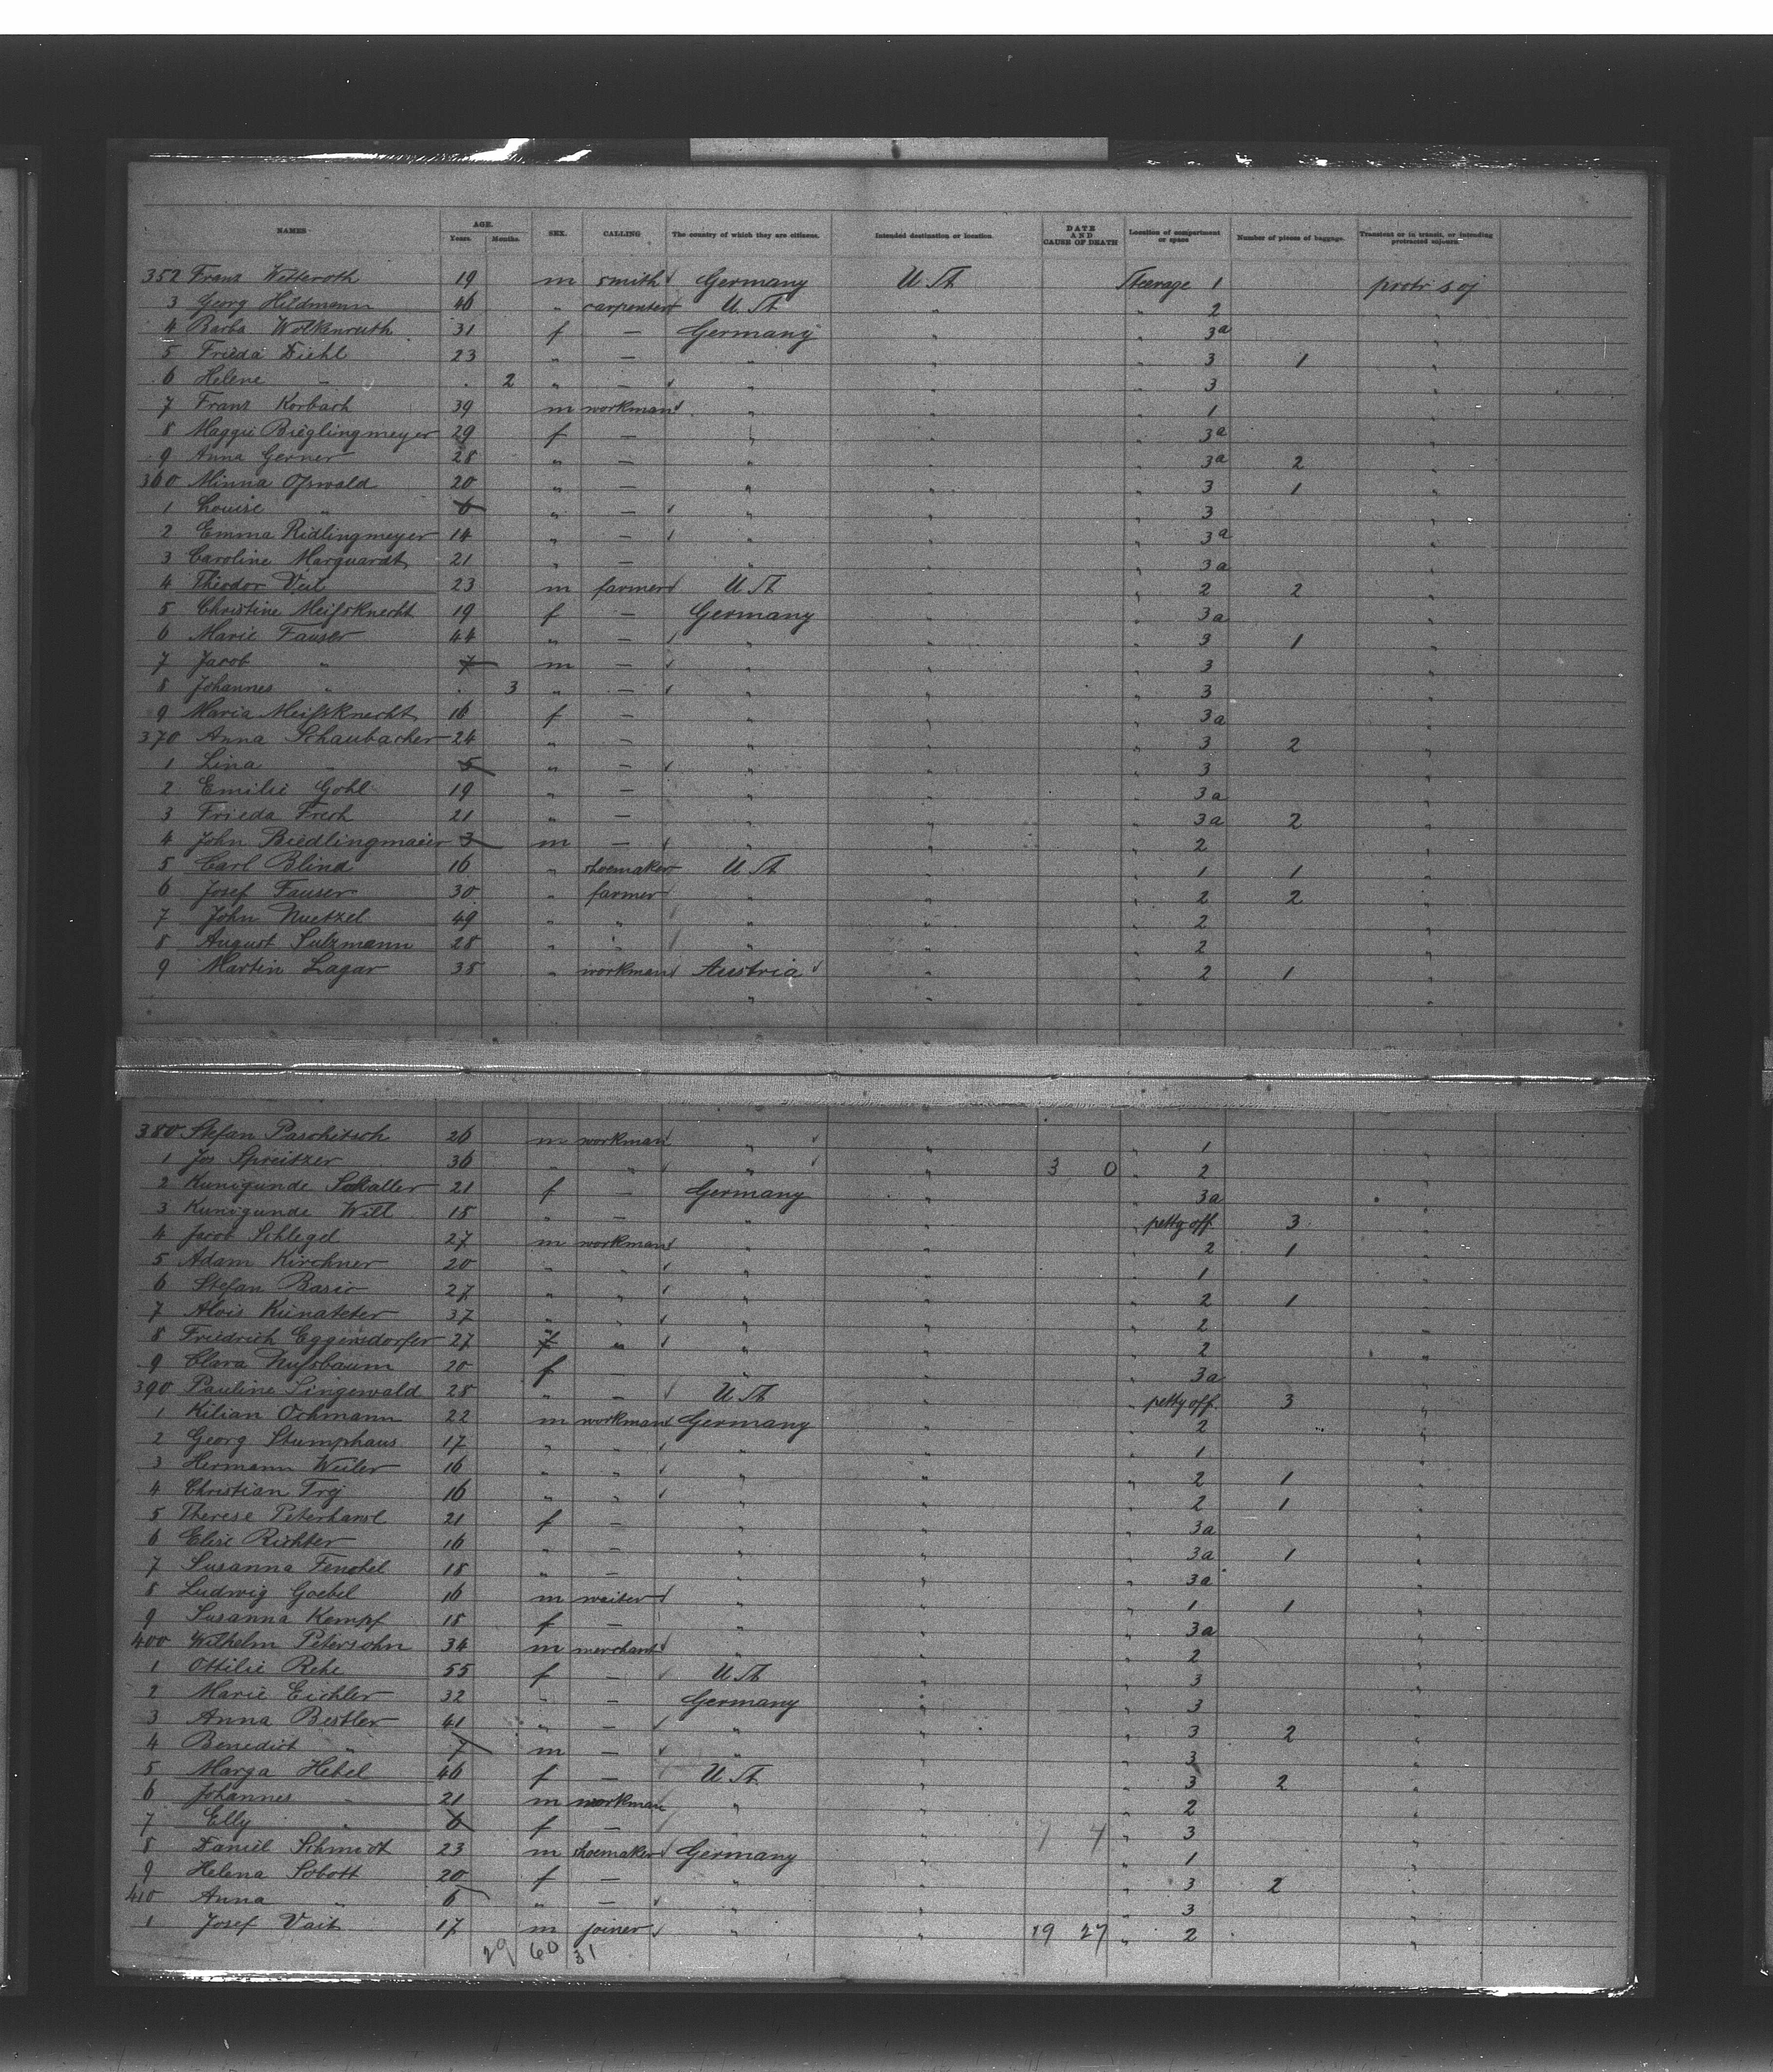 NAMES AGE. Years. Months. SEX. CALLING The country of which they are citizens. Intended destination or location. DATE AND CAUSE OF DEATH Location of compartment or space Number of pieces of baggage. Transient or in transit, or intending protracted sojourn.
352 Franz Witteroth 19 m smith Germany U St Steerage 1 protr soj
3 Georg Hildmann 46 " carpenter U. St " " 2 "
4 Barba Wolkenruth 31 f — Germany " 3a "
5 Frieda Diehl 23 " — " " " 3 1 "
6 Helene " . 2 " — " " " 3 "
7 Franz Korbach 39 m workman " " " 1 "
8 Maggie Bieglingmeyer 29 f — " " " 3a "
9 Anna Gerner 28 " — " " " 3a 2 "
360 Minna Oſswald 20 " — " " " 3 1 "
1 Louise " 6 " — " " " 3 "
2 Emma Ridlingmeyer 14 " — " " " 3a "
3 Caroline Marquardt 21 " — " " " 3a "
4 Theodor Veil 23 m farmer U St " " 2 2 "
5 Christine Meiſsknecht 19 f — Germany " " 3a "
6 Marie Fauser 44 " — " " " 3 1 "
7 Jacob " 7 m — " " " 3 "
8 Johannes " . 3 " — " " " 3 "
9 Maria Meiſsknecht 16 f — " " " 3a "
370 Anna Schaubacher 24 " — " " " 3 2 "
1 Lina " 5 " — " " " 3 "
2 Emilie Gohl 19 " — " " " 3a "
3 Frieda Frech 21 " — " " " 3a 2 "
4 John Biedlingmaier 3 m — " " " 2 "
5 Carl Blind 16 " shoemaker U St " " 1 1 "
6 Josef Fauser 30 " farmer " " " 2 2 "
7 John Nuetzel 49 " " " " " 2 "
8 August Sulzmann 28 " " " " " 2 "
9 Martin Lagar 38 " workman Austria " " 2 1 "
380 Stefan Paschitsch 26 m workman " " " 1 "
1 Jos Spreitzer 36 " " " " 3 0 " 2 "
2 Kunigunde Schaller 21 f — Germany " " 3a "
3 Kunigunde Will 18 " — " " " petty off. 3 "
4 Jacob Schlegel 27 m workman " " " 2 1 "
5 Adam Kirchner 20 " " " " " 1 "
6 Stefan Basic 27 " " " " " 2 1 "
7 Alois 37 " " " " " 2 "
8 Friedrich Eggersdorfer 27 " " " " 2 "
9 Clara Nuſsbaum 20 f — " " " 3a "
390 Pauline Singewald 28 " — U St " " petty off. 3 "
1 Kilian Ochmann 22 m workman Germany " " 2 "
2 Georg Stumphaus 17 " " " " " 1 "
3 Hermann Weiler 16 " " " " " 2 1 "
4 Christian 16 " " " " " 2 1 "
5 Therese Peterhansl 21 f — " " " 3a "
6 Elise Richter 16 " — " " " 3a 1 "
7 Susanna Fenchel 18 " — " " " 3a "
8 Ludwig Goebel 16 m waiter " " " 1 1 "
9 Susanna Kempf 18 f — " " " 3a "
400 Wilhelm Petersohn 34 m merchant " " " 2 "
1 Ottilie Rehe 55 f — U St " " 3 "
2 Marie Eichler 32 " — Germany " " 3 "
3 Anna Bestler 41 " — " " " 3 2 "
4 Benedict " 7 m — " " " 3 "
5 Marga Hebel 46 f — U St " " 3 2 "
6 Johannes " 21 m workman " " " 2 "
7 Elly " 6 f — " " 7 4 " 3 "
8 Daniel Schmidt 23 m shoemaker Germany " " 1 "
9 Helena Sobott 20 f — " " " 3 2 "
410 Anna " 6 " — " " " 3 "
1 Josef Vait 17 m joiner " " 19 27 " 2 "
29 60 31